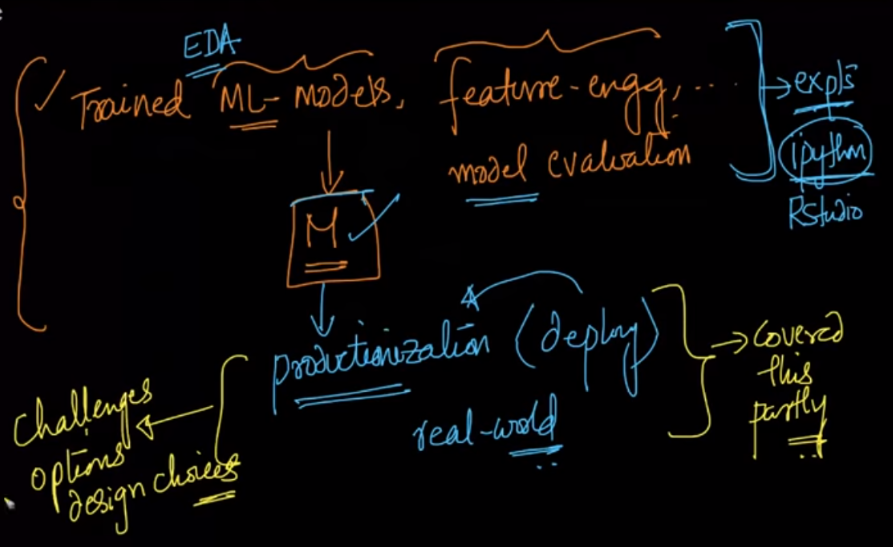 EDA
Trained ML-models, feature-engg, ...
model evaluation
expts
ipython
RStudio
M
productionization (deploy)
real-world
covered
this
partly
challenges
options
design choices